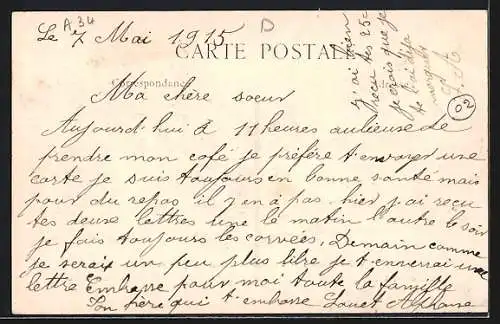 A 34
Le 7 Mai 1915
D
CARTE POSTALE
Correspondance
j'ai bien
recu tes 25c
je crois que je
te l'ai deja
marqué
L A
02
Ma chère soeur
Aujourd'hui à 11 heures aulieu de
prendre mon café je préfère t'envoyer une
carte je suis toujours en bonne santé mais
pour du repos il y en a pas. hier j'ai reçu
tes deux lettres une le matin l'autre le soir
je fais toujours les corvées, Demain comme
je serais un peu plus libre je t'enverrai une
lettre Embrasse pour moi toute la famille
Ton frère qui t'embrasse Louet Alphonse